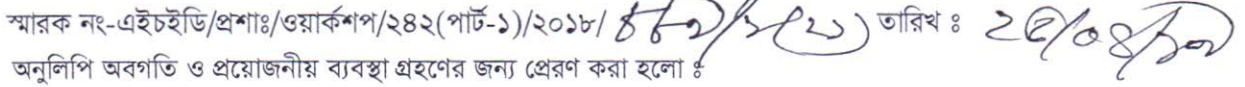 স্মারক নং-এইচইডি/প্রশাঃ/ওয়ার্কশপ/২৪২(পার্ট-১)/২০১৮/ তারিখ ঃ
অনুলিপি অবগতি ও প্রয়োজনীয় ব্যবস্থা গ্রহণের জন্য প্রেরণ করা হলো ঃ